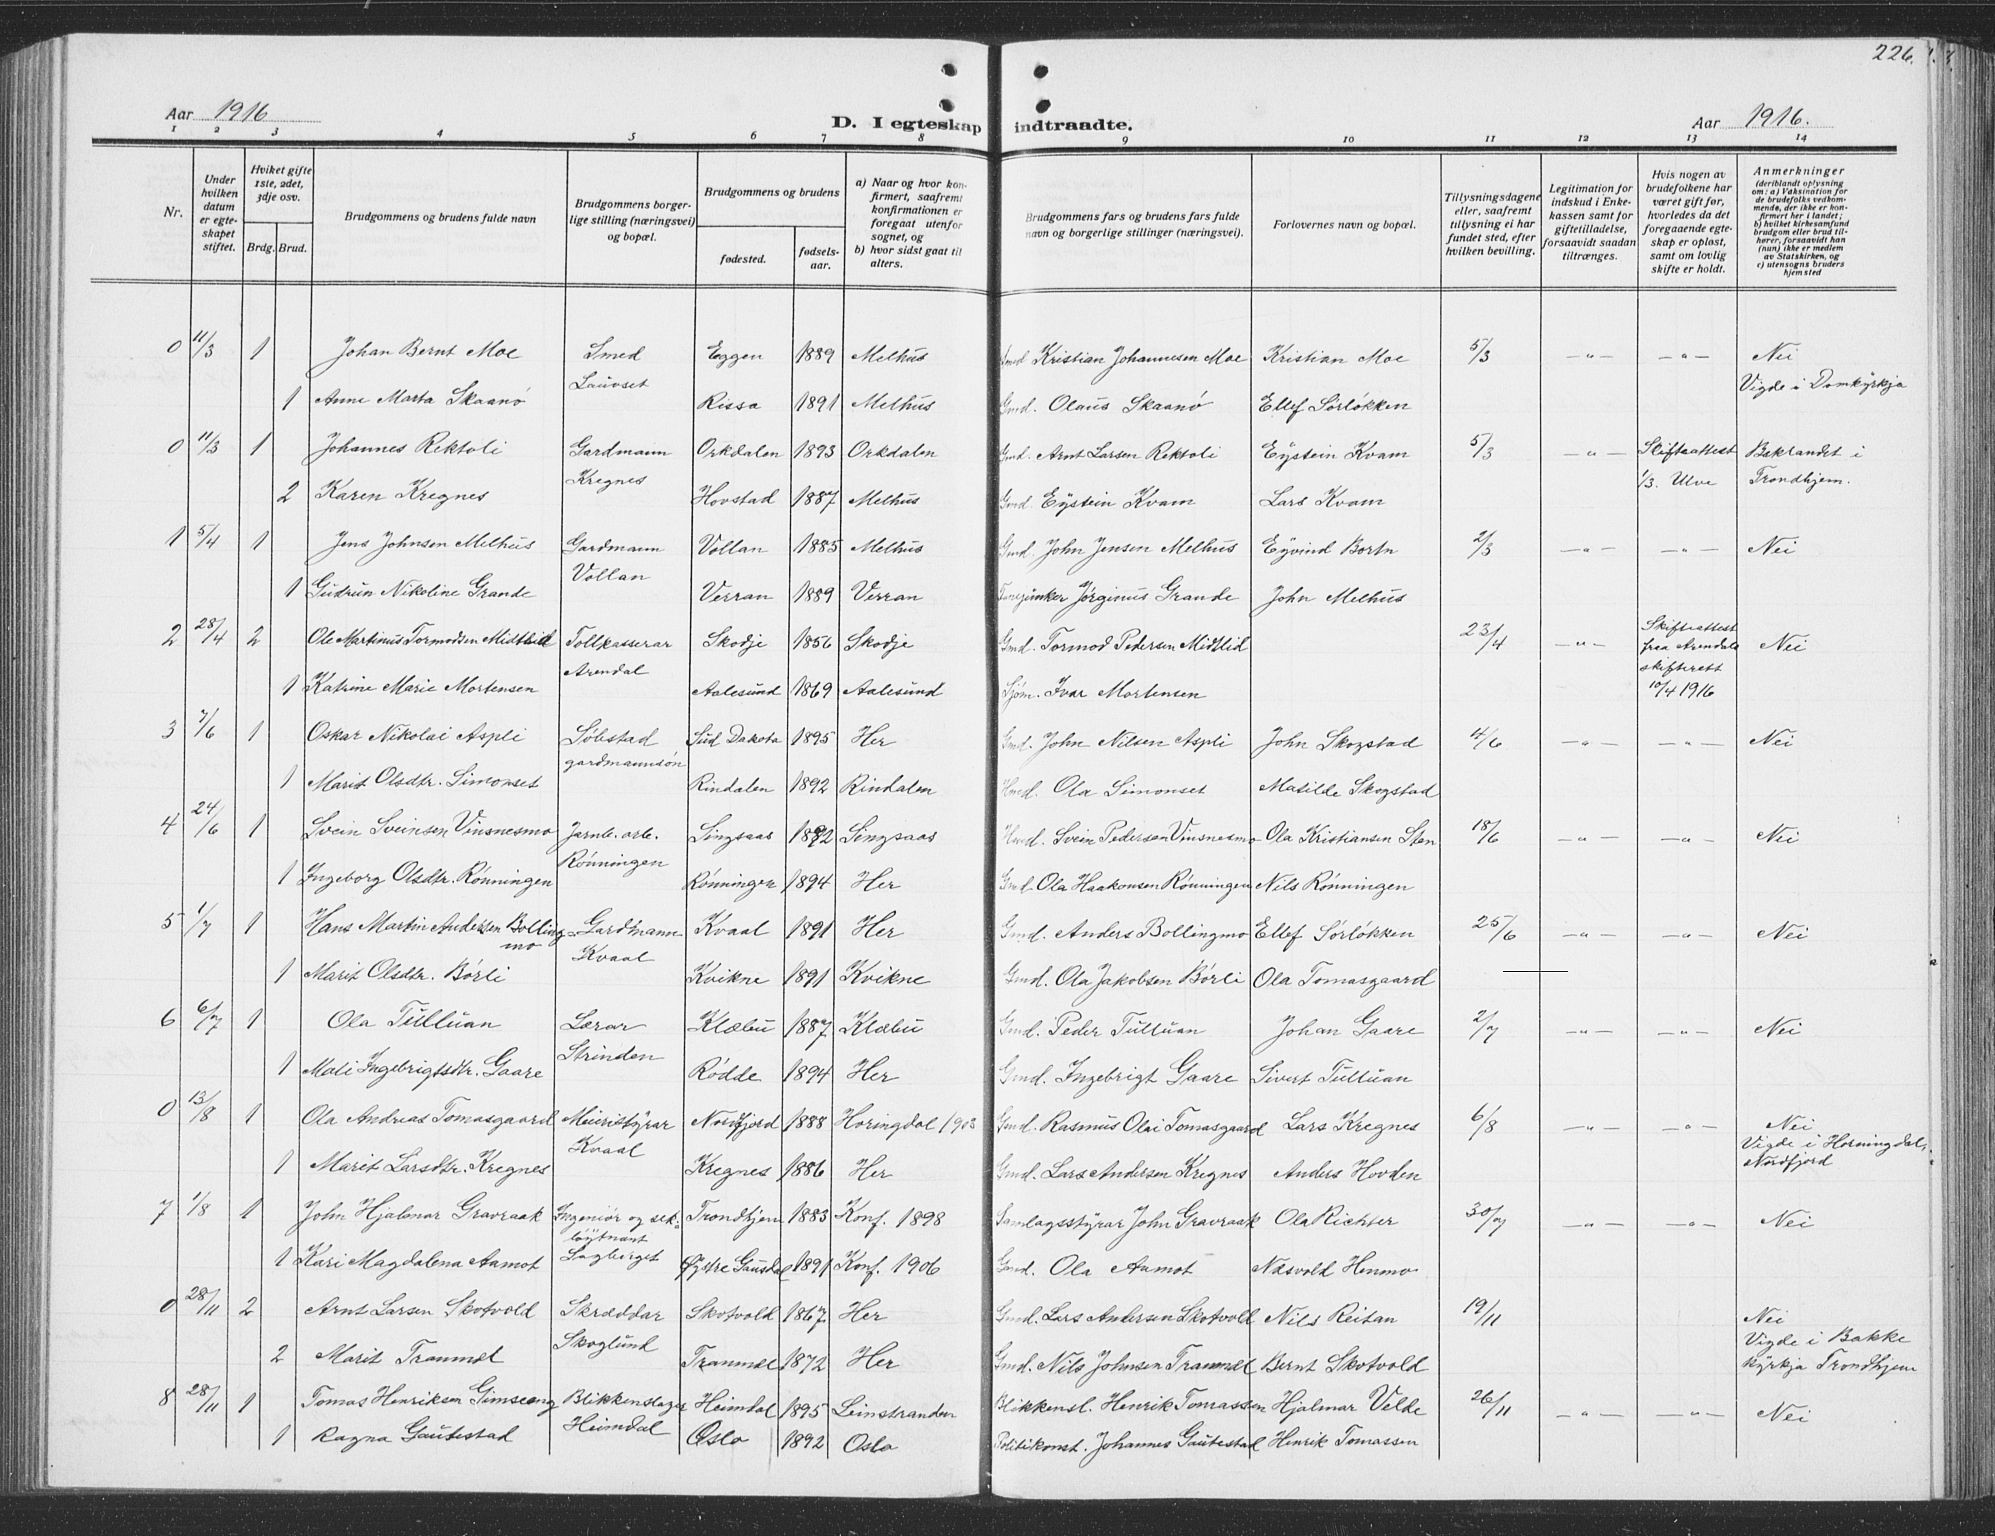 226.
Aar 1916 D. I egteskap indtraadte. Aar 1916.
1 2 3 4 5 6 7 8 9 10 11 12 13 14
Nr.
Under hvilken datum er egteskapet stiftet.
Hvilket gifte 1ste, 2det, 3dje osv.
Brdg. Brud.
Brudgommens og brudens fulde navn
Brudgommens borgerlige stilling (næringsvei) og bopæl.
Brudgommens og brudens
fødested. fødselsaar.
a) Naar og hvor konfirmert, saafremt konfirmationen er foregaat utenfor sognet, og
b) hvor sidst gaat til alters.
Brudgommens fars og brudens fars fulde navn og borgerlige stillinger (næringsvei).
Forlovernes navn og bopæl.
Tillysningsdagene eller, saafremt tillysning ei har fundet sted, efter hvilken bevilling.
Legitimation for indskud i Enkekassen samt for giftetilladelse, forsaavidt saadan tiltrænges.
Hvis nogen av brudefolkene har været gift før, hvorledes da det foregaaende egteskap er opløst, samt om lovlig skifte er holdt.
Anmerkninger
(deriblandt oplysning om: a) Vaksination for de brudefolks vedkommende, der ikke er konfirmert her i landet; b) hvilket kirkesamfund brudgom eller brud tilhører, forsaavidt han (hun) ikke er medlem av Statskirken, og c) utensogns bruders hjemsted
0 11/3 1 Johan Bernt Moe Smed Eggen 1889 Melhus Smed Kristian Johannesen Moe Kristian Moe 5/3 — " — — " — Nei
Lauvset Vigde i Domkyrkja
1 Anne Marta Skaanø Rissa 1891 Melhus Gmd. Olaus Skaanø Ellef Sørløkken
0 11/3 1 Johannes Rektoli Gardmann Orkdalen 1893 Orkdalen Gmd. Arnt Larsen Rektoli Eystein Kvam 5/3 — " — Skifteattest Baklandet i
Kregnes 1/3. Ulve Trondhjem.
2 Karen Kregnes Hovstad 1887 Melhus Gmd. Eystein Kvam Lars Kvam
1 5/4 1 Jens Johnsen Melhus Gardmann Vollan 1885 Melhus Gmd. John Jensen Melhus Eyvind Bortn 2/3 — " — — " — Nei
Vollan
1 Gudrun Nikoline Grande Verran 1889 Verran Jørginus Grande John Melhus
2 28/4 2 Ole Martinus Tormodsen Midtlid Tollkasserar Skodje 1856 Skodje Gmd. Tormod Pedersen Midtlid 23/4 — " — Skifteattest fraa Arendals skifterett 10/4 1916 Nei
Arendal
1 Katrine Marie Mortensen Aalesund 1869 Aalesund Sjøm. Ivar Mortensen
3 7/6 1 Oskar Nikolai Aspli Søbstad Sud Dakota 1895 Her Gmd. John Nilsen Aspli John Skogstad 4/6 — " — — " — Nei
gardmannsøn
1 Marit Olsdtr. Simonset Rindalen 1892 Rindalen Hmd. Ola Simonset Matilde Skogstad
4 24/6 1 Svein Sveinsen Vinsnesmo Jarnb. arb. Singsaas 1892 Singsaas Hmd. Svein Pedersen Vinsnesmo Ola Kristiansen Sten 18/6 — " — — " — Nei
Rønningen
1 Ingeborg Olsdtr. Rønningen Rønningen 1894 Her Gmd. Ola Haakonsen Rønningen Nils Rønningen
5 1/7 1 Hans Martin Andersen Bollingmo Gardmann Kvaal 1891 Her Gmd. Anders Bollingmo Ellef Sørløkken 25/6 — " — — " — Nei
Kvaal
1 Marit Olsdtr. Børli Kvikne 1891 Kvikne Gmd. Ola Jakobsen Børli Ola Tomasgaard
6 6/7 1 Ola Tulluan Lærar Klæbu 1887 Klæbu Gmd. Peder Tulluan Johan Gaare 2/7 — " — — " — Nei
Strinden
1 Mali Ingebrigtsdtr. Gaare Rødde 1894 Her Gmd. Ingebrigt Gaare Sivert Tulluan
0 13/8 1 Ola Andreas Tomasgaard Meieristyrar Nordfjord 1888 Horingdal 1903 Gmd. Rasmus Olai Tomasgaard Lars Kregnes 6/8 — " — — " — Nei
Kvaal Vigde i Horningdal, Nordfjord
1 Marit Larsdtr. Kregnes Kregnes 1886 Her Gmd. Lars Andersen Kregnes Anders Hovden
7 1/8 1 John Hjalmar Gravraak Ingeniør og sek. Trondhjem 1883 Konf. 1898 Samlagsstyrar John Gravraak Ola Richter 30/7 — " — — " — Nei
løytnant
1 Kari Magdalena Aamot Lagberget Øystre Gausdal 1891 Konf. 1906 Gmd. Ola Aamot Næsvold Henmo
0 28/11 2 Arnt Larsen Skotvold Skræddar Skotvold 1867 Her Gmd. Lars Andersen Skotvold Nils Reitan 19/11 Nei
Skoglund Vigde i Bakke
2 Marit Tranmæl Tranmæl 1872 Her Gmd. Nils Johnsen Tranmæl Bernt Skotvold kyrkja Trondhjem
8 28/11 1 Tomas Henriksen Gimseang Blikkenslager Heimdal 1895 Leinstranden Blikkensl. Henrik Tomassen Hjalmar Velde 26/11 — " — — " — Nei
Heimdal
1 Ragna Gautestad Oslo 1892 Oslo Politikonst. Johannes Gautestad Henrik Tomassen